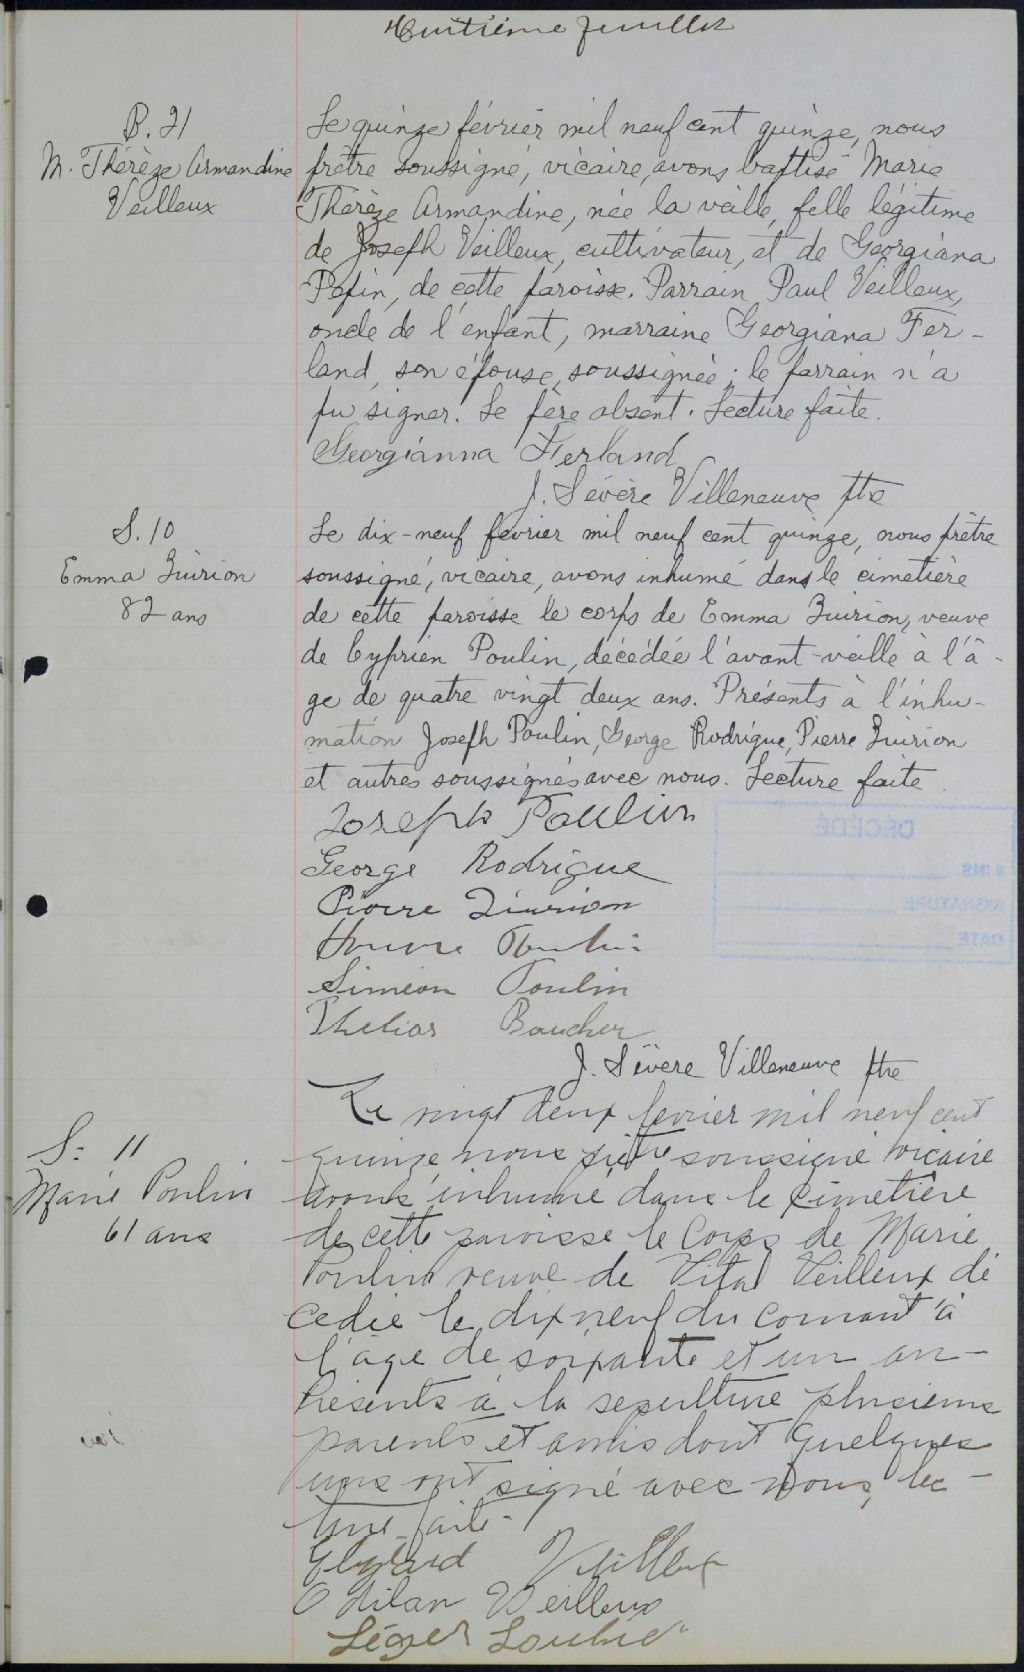 Huitième feuillet
B. 21
M. Thérèze Armandine
Veilleux
Le quinze février mil neuf cent quinze, nous
prêtre soussigné, vicaire, avons baptisé Marie
Thérèze Armandine, née la veille, fille légitime
de Joseph Veilleux, cultivateur, et de Georgiana
Pepin, de cette paroisse. Parrain Paul Veilleux,
oncle de l'enfant, marraine Georgiana Fer-
land, son épouse, soussignée; le parrain n'a
pu signer. Le père absent. Lecture faite.
Georgianna Ferland
J. Sévère Villeneuve ptre
S. 10
Emma Quirion
82 ans
Le dix-neuf février mil neuf cent quinze, nous prêtre
soussigné, vicaire, avons inhumé dans le cimetière
de cette paroisse le corps de Emma Quirion, veuve
de Cyprien Poulin, décédée l'avant-veille à l'â-
ge de quatre vingt deux ans. Présents à l'inhu-
mation Joseph Poulin, George Rodrigue, Pierre Quirion
et autres soussignés avec nous. Lecture faite.
Joseph Poulin
George Rodrigue
Pierre Quirion
Poulin
Siméon Poulin
Boucher
J. Sévère Villeneuve ptre
DÉCÉDÉ
SIGNATURE
DATE
S- 11
Marie Poulin
61 ans
Le vingt deux fevrier mil neuf cent
quinze nous prêtre soussigné vicaire
avons inhumé dans le cimetière
de cette paroisse le corps de Marie
Poulin veuve de Vital Veilleux dé
cedée le dix neuf du courant à
l'age de soixante et un an-
Présents à la sepulture plusieurs
parents et amis dont quelques
uns ont signé avec nous, lec-
ture faite-
Veilleux
Odilan Veilleux
Léger Loubier